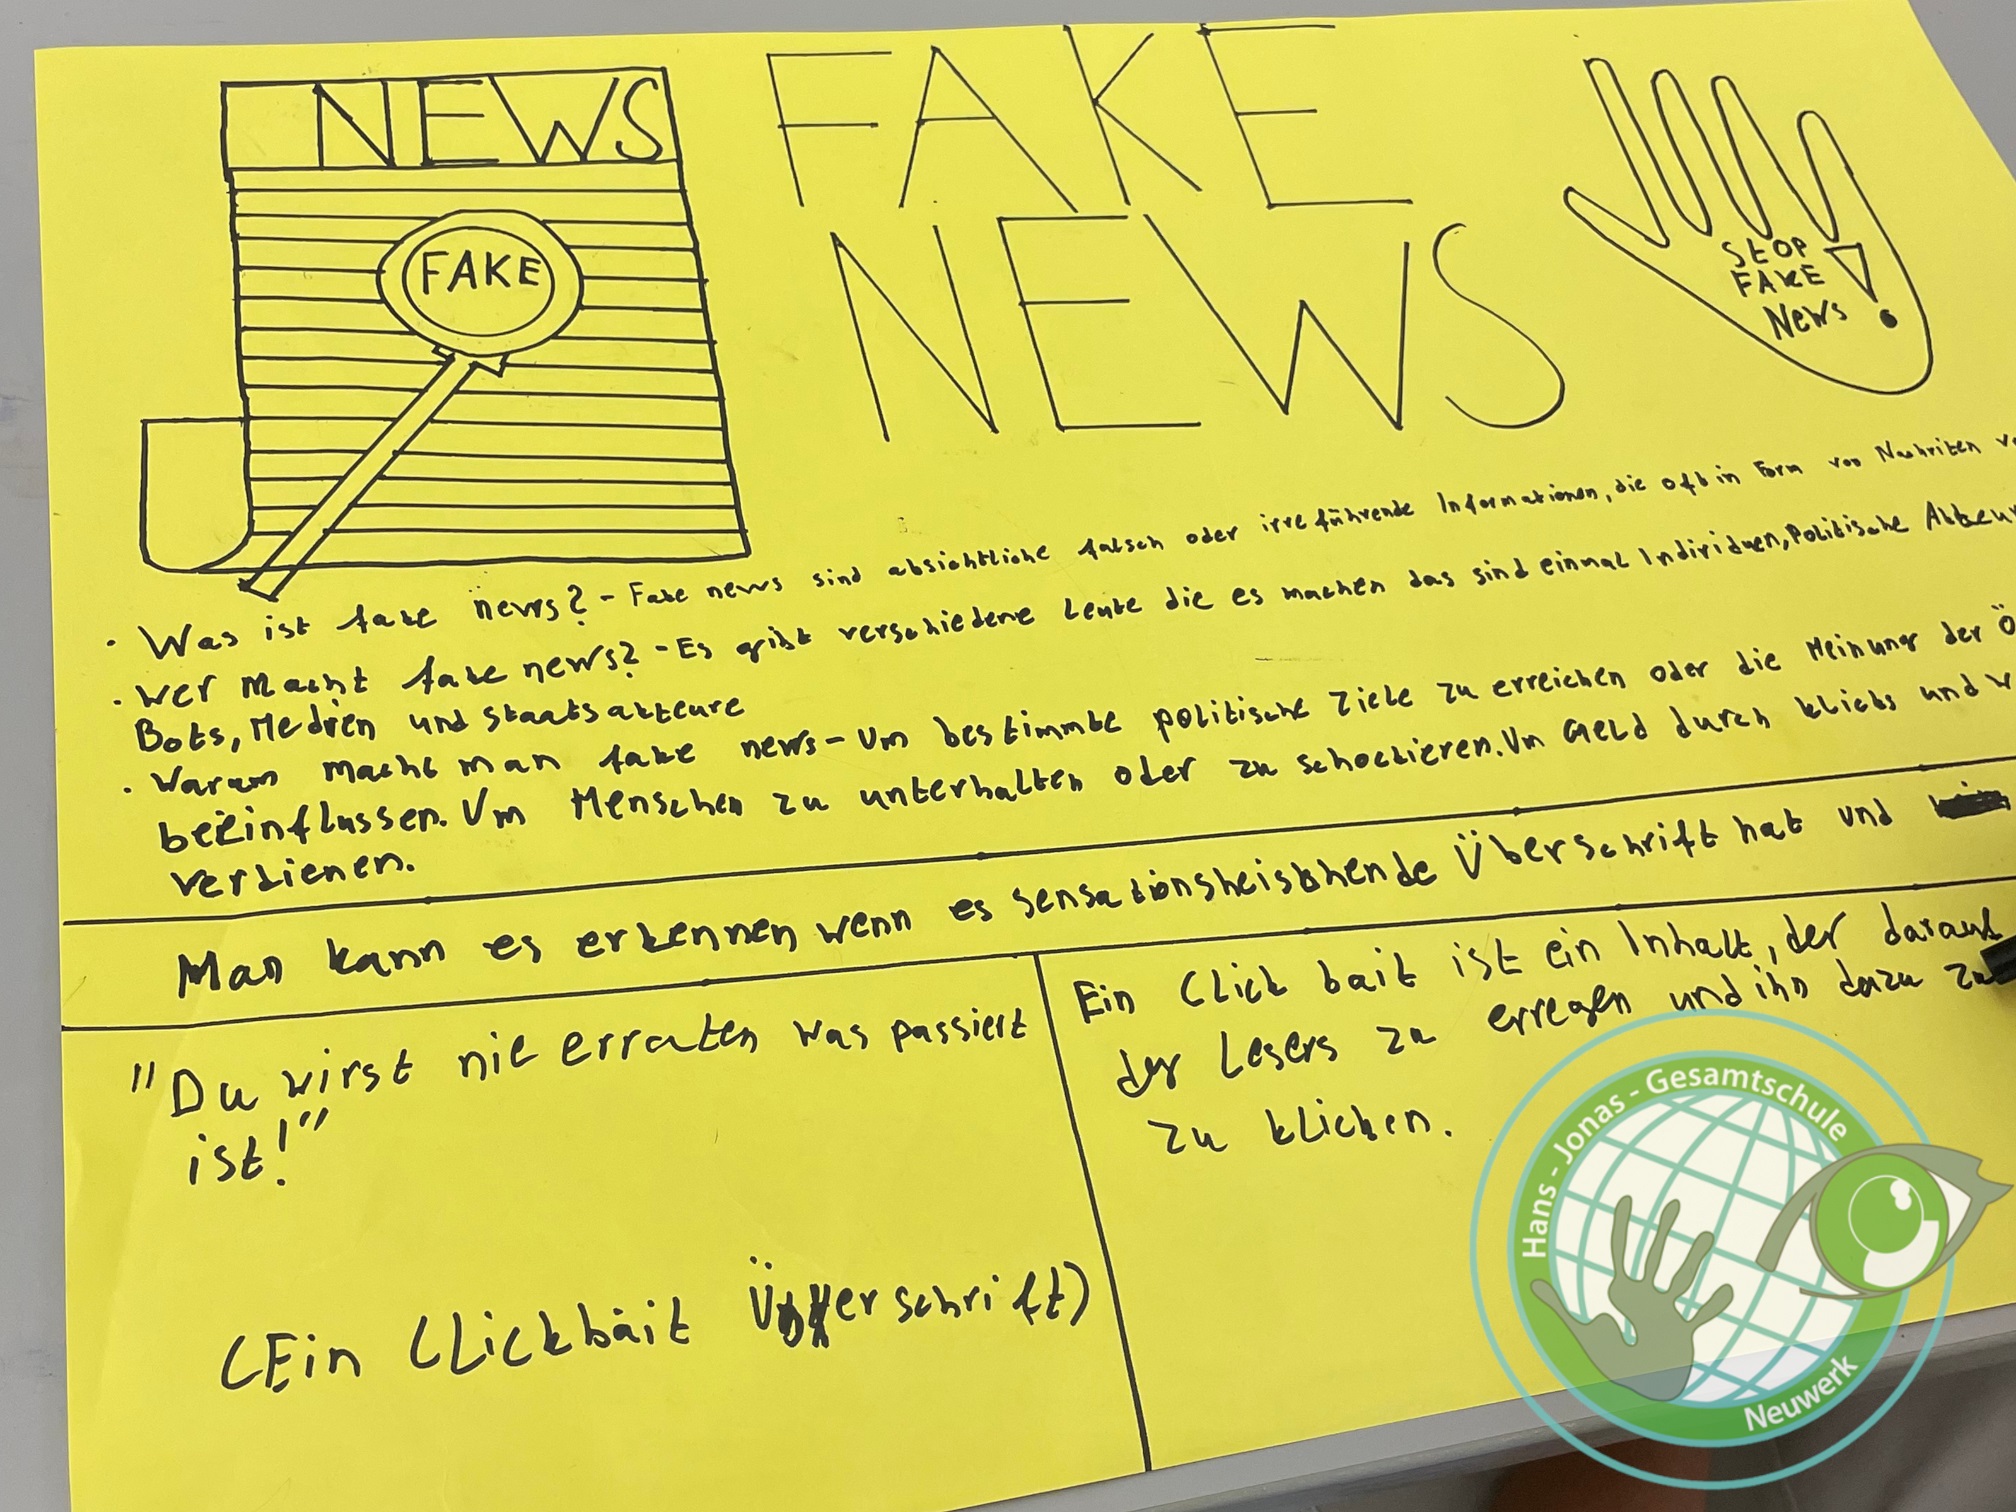 NEWS
FAKE
FAKE
NEWS
STOP
FAKE
News
!
• Was ist fake news? - Fake news sind absichtliche falsch oder irreführende Informationen, die oft in Form von Nachriten
• Wer macht fake news? - Es gibt verschiedene Leute die es machen das sind einmal Individuen, Politische Akteur
Bots, Medien und staatsakteure
• Warum macht man fake news - Um bestimmte politische Ziele zu erreichen oder die Meinung der Ö
beeinflussen. Um Menschen zu unterhalten oder zu schockieren. Um Geld durch klicks und
verdienen.
Man kann es erkennen wenn es sensationsheischende Überschrift hat und
"Du wirst nie erraten was passiert
ist!"
(Ein Clickbait Überschrift)
Ein Click bait ist ein Inhalt, der darauf
der Lesers zu erregen und ihn dazu zu
zu klicken.
Hans - Jonas - Gesamtschule
Neuwerk